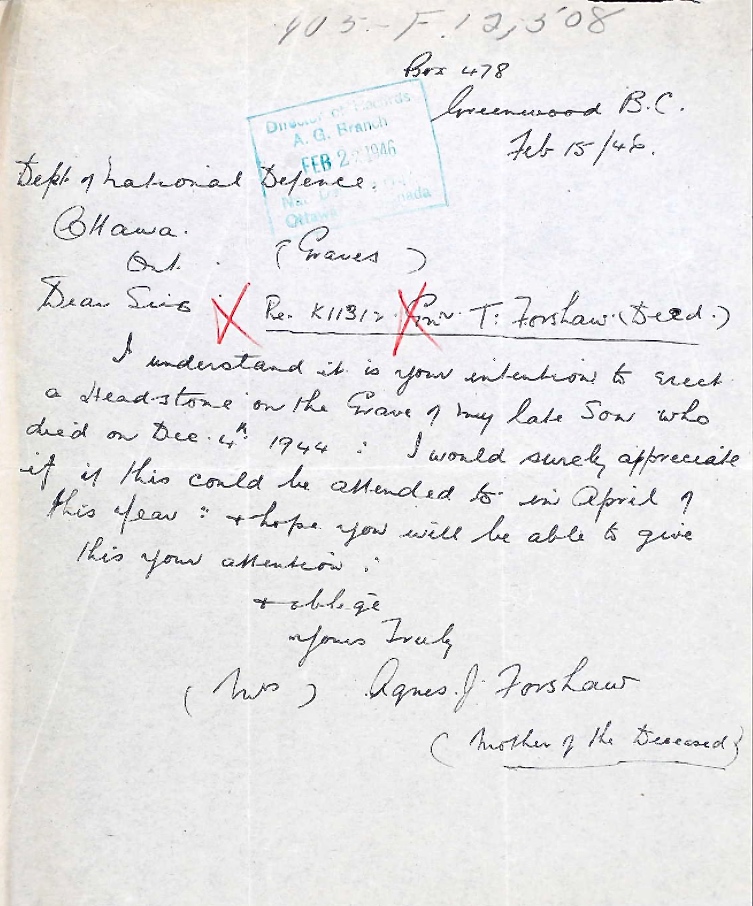 405-F.12,508
Box 478
Greenwood B.C.
Feb 15/46.
Director of Records
A. G. Branch
FEB 22 1946
Ottawa Canada
Dept of National Defence.
Ottawa.
Ont.
(Graves)
Dear Sirs
Re. K11312. Gnr. T. Forshaw. (Decd.)
I understand it is your intention to erect
a Head-stone on the Grave of my late Son who
died on Dec. 4th 1944 : I would surely appreciate
it if this could be attended to in April of
this year : + hope you will be able to give
this your attention :
+ oblige
Yours Truly
(Mrs) Agnes. J. Forshaw
(Mother of the Deceased)